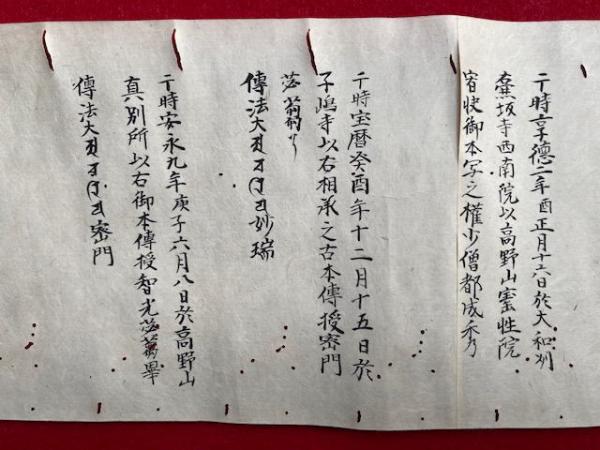 于時享德二年酉正月十六日於大和刕
壷坂寺西南院以高野山寳性院
宥快御本写之權少僧都成秀
于時宝暦癸酉年十二月十五日於
子嶋寺以右相承之古本傳授密門
苾蒭了
傳法大妙瑞
于時安永九年庚子六月八日於高野山
真別所以右御本傳授智光苾蒭畢
傳法大密門